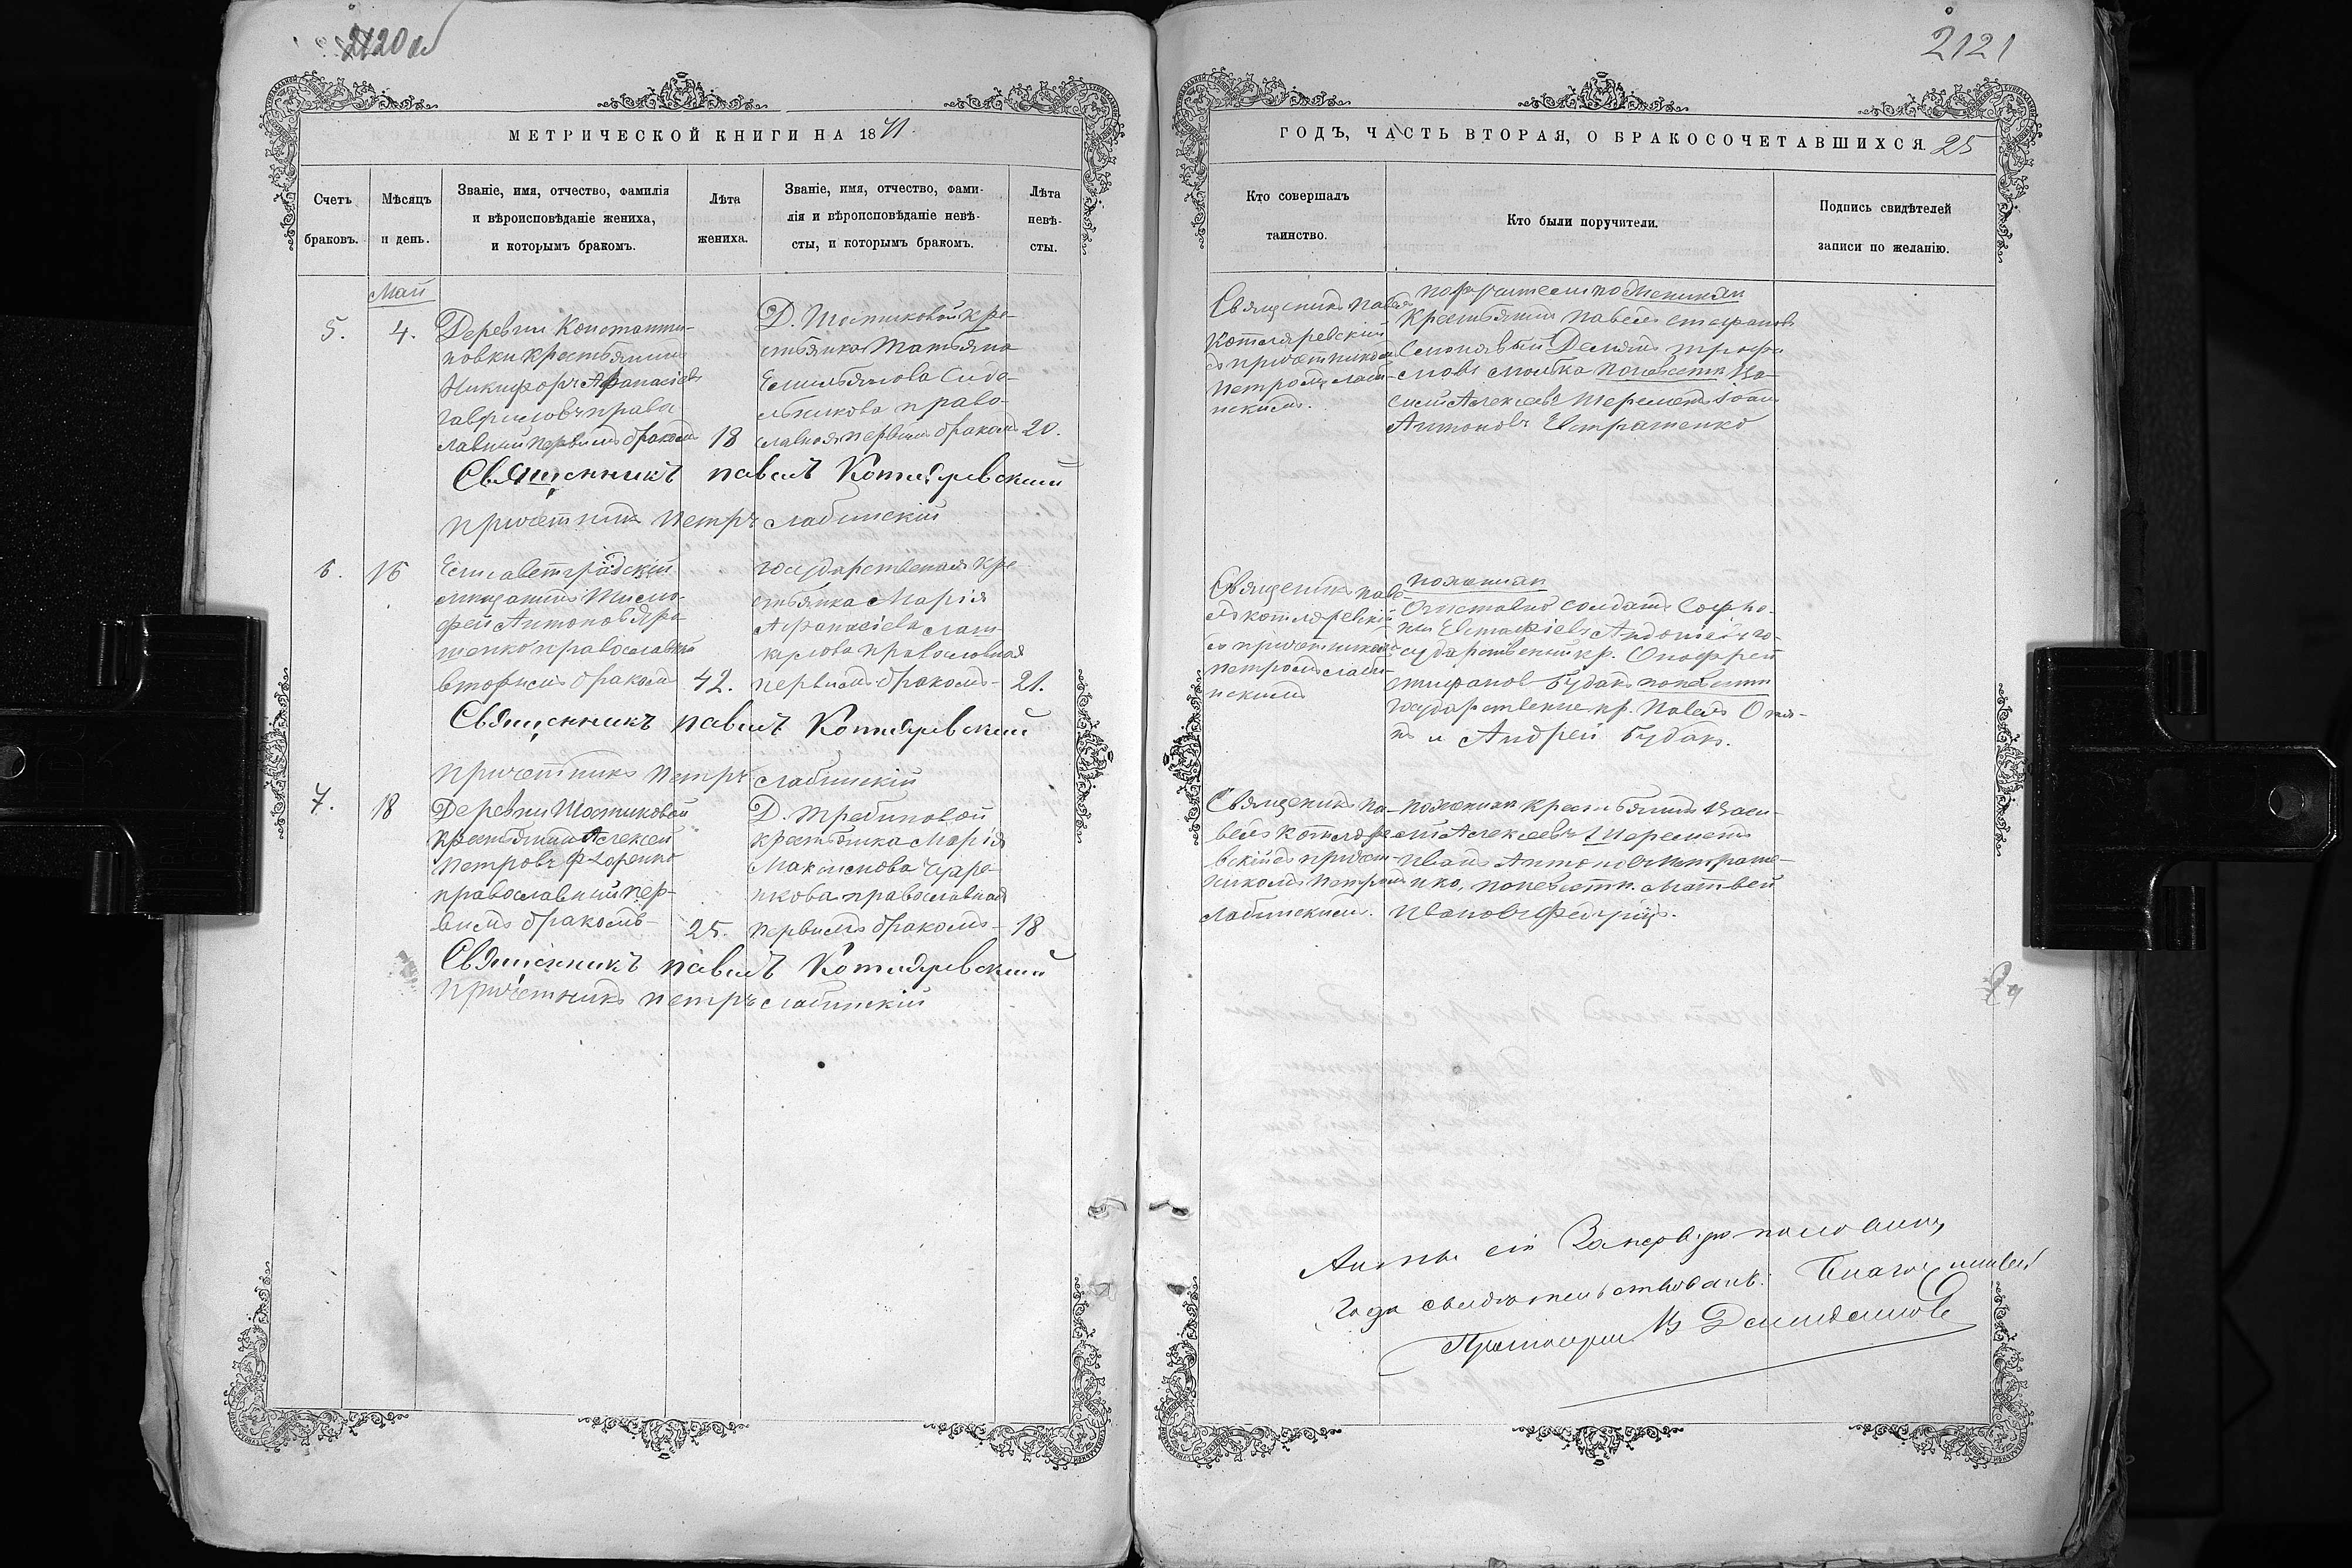 2120 об
МЕТРИЧЕСКОЙ КНИГИ НА 1871.
Счетъ
браковъ.
Мѣсяцъ
и день.
Званіе, имя, отчество, фамилія
и вѣроисповѣданіе жениха,
и которымъ бракомъ.
Лѣта
жениха.
Званіе, имя, отчество, фами-
лія и вѣроисповѣданіе невѣ-
сты, и которымъ бракомъ.
Лѣта
невѣ-
сты.
Май
5.
4.
Деревни Константи-
новки крестьянинъ
Никифоръ Афанасіевъ
Гавриловъ право
славный первымъ бракомъ
18
Д. Шостиковой кре-
стьянка Татьяна
Емильянова
православная первымъ бракомъ
20.
Священникъ Павелъ Котляревский
Причетникъ Петръ Слабинскій
6.
16
Елисаветградскій
мещанинъ Тимо-
фей Антоновъ
православный
вторымъ бракомъ
42.
государственная кре
стьянка Марія
Афанасіева
православная
первымъ бракомъ
21.
Священникъ Павелъ Котляревский
Причетникъ Петръ Слабинскій
7.
18
Деревни Шостиковой
крестьянинъ Алексей
Петровъ
православный пер-
вымъ бракомъ
25.
Д. Требиновой
крестьянка Марія
Максимова
православная
первымъ бракомъ
18
Священникъ Павелъ Котляревский
Причетникъ Петръ Слабинскій
2121
ГОДЪ, ЧАСТЬ ВТОРАЯ, О БРАКОСОЧЕТАВШИХСЯ. 25
Кто совершалъ
таинство.
Кто были поручители.
Подпись свидѣтелей
записи по желанію.
Священикъ Павелъ
Котляревскій
съ причетникомъ
Петромъ Слаб-
инскимъ.
поручители по женихам
крестьянинъ Павелъ Стефановъ
Демянъ Трофи
мовъ по невести Ва-
силий Алексеевъ Шеремета Іоанъ
Антоновъ Евтратенко
Священикъ Паве-
лъ Котляревскій
съ причетникомъ
Петромъ Слаб-
инскимъ
по жениху
Отставной солдатъ Софро-
ний Евстафіевъ го-
сударственный кр. Онофрей
Стифановъ Будакъ по невести
государственые кр. Павелъ
и Андрей Будакъ.
Священикъ Па-
велъ Котляре
вский съ причет-
никомъ Петромъ
Слабинскимъ.
по жениху крестьянинъ Васи-
лий Алексеевъ Шеремета
Иванъ Антоновъ Евтрате-
нко, по невести Матвей
Ивановъ
Акты сіи За первую половину
Года свидѣтельствовалъ. Благочинный
Протоиерей